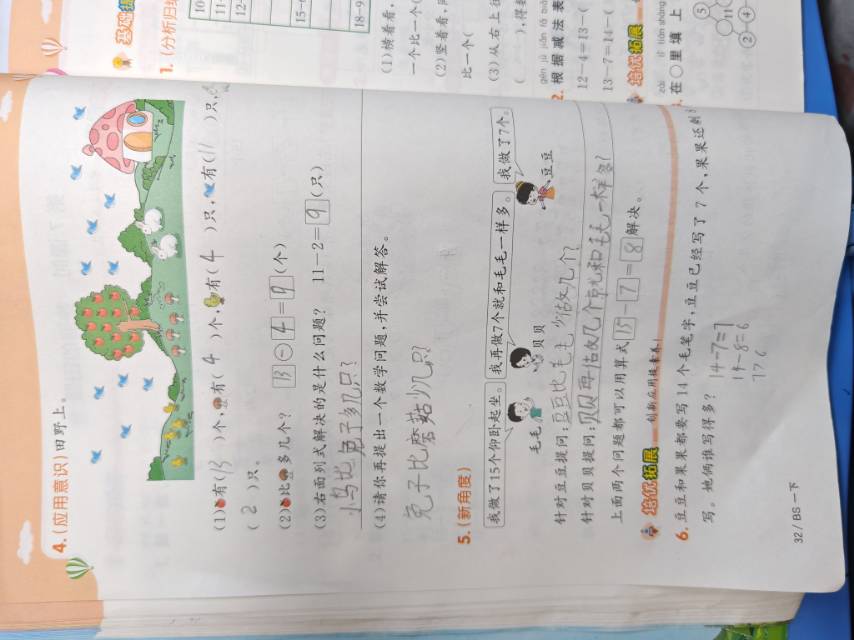 4.(应用意识)田野上。
(1)有(13)个,有(4)个,有(4)只,有(11)只,
(2)只。
(2)比多几个? 13-4=9(个)
(3)右面列式解决的是什么问题? 11-2=9(只)
小鸟比兔子多几只?
(4)请你再提出一个数学问题,并尝试解答。
兔子比蘑菇少几只?
5.(新角度)
我做了15个仰卧起坐。
我再做7个就和毛毛一样多。
我做了7个。
毛毛
贝贝
豆豆
针对豆豆提问:豆豆比毛毛少做几个?
针对贝贝提问:贝贝再做几个就和毛毛一样多?
上面两个问题都可以用算式15-7=8解决。
培优拓展 创新应用提素养!
6.豆豆和果果都要写14个毛笔字,豆豆已经写了7个,果果还剩
写。她俩谁写得多?
14-7=7
14-8=6
7>6
32/BS一下
基础
1.(分析归
10
11-
12-
15-6
18-9
(1)横着看,
一个比一个(
(2)竖着看,
比一个(
(3)从右上往
),得数
gēn jù jiǎn fǎ
2.根据减法表
12-4=13-(
13-7=14-(
培优拓展
zài tián shàng
在○里填上
5
11
2
4